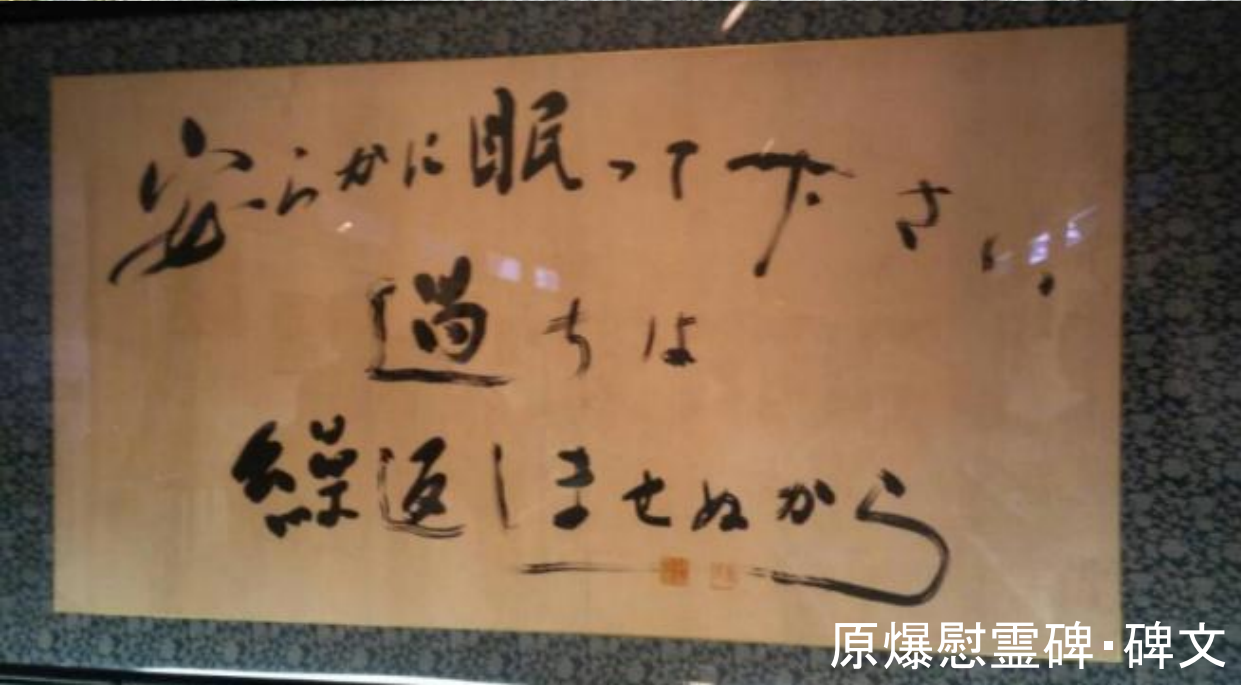 安らかに眠って下さい。
過ちは
繰返しませぬから
原爆慰霊碑・碑文